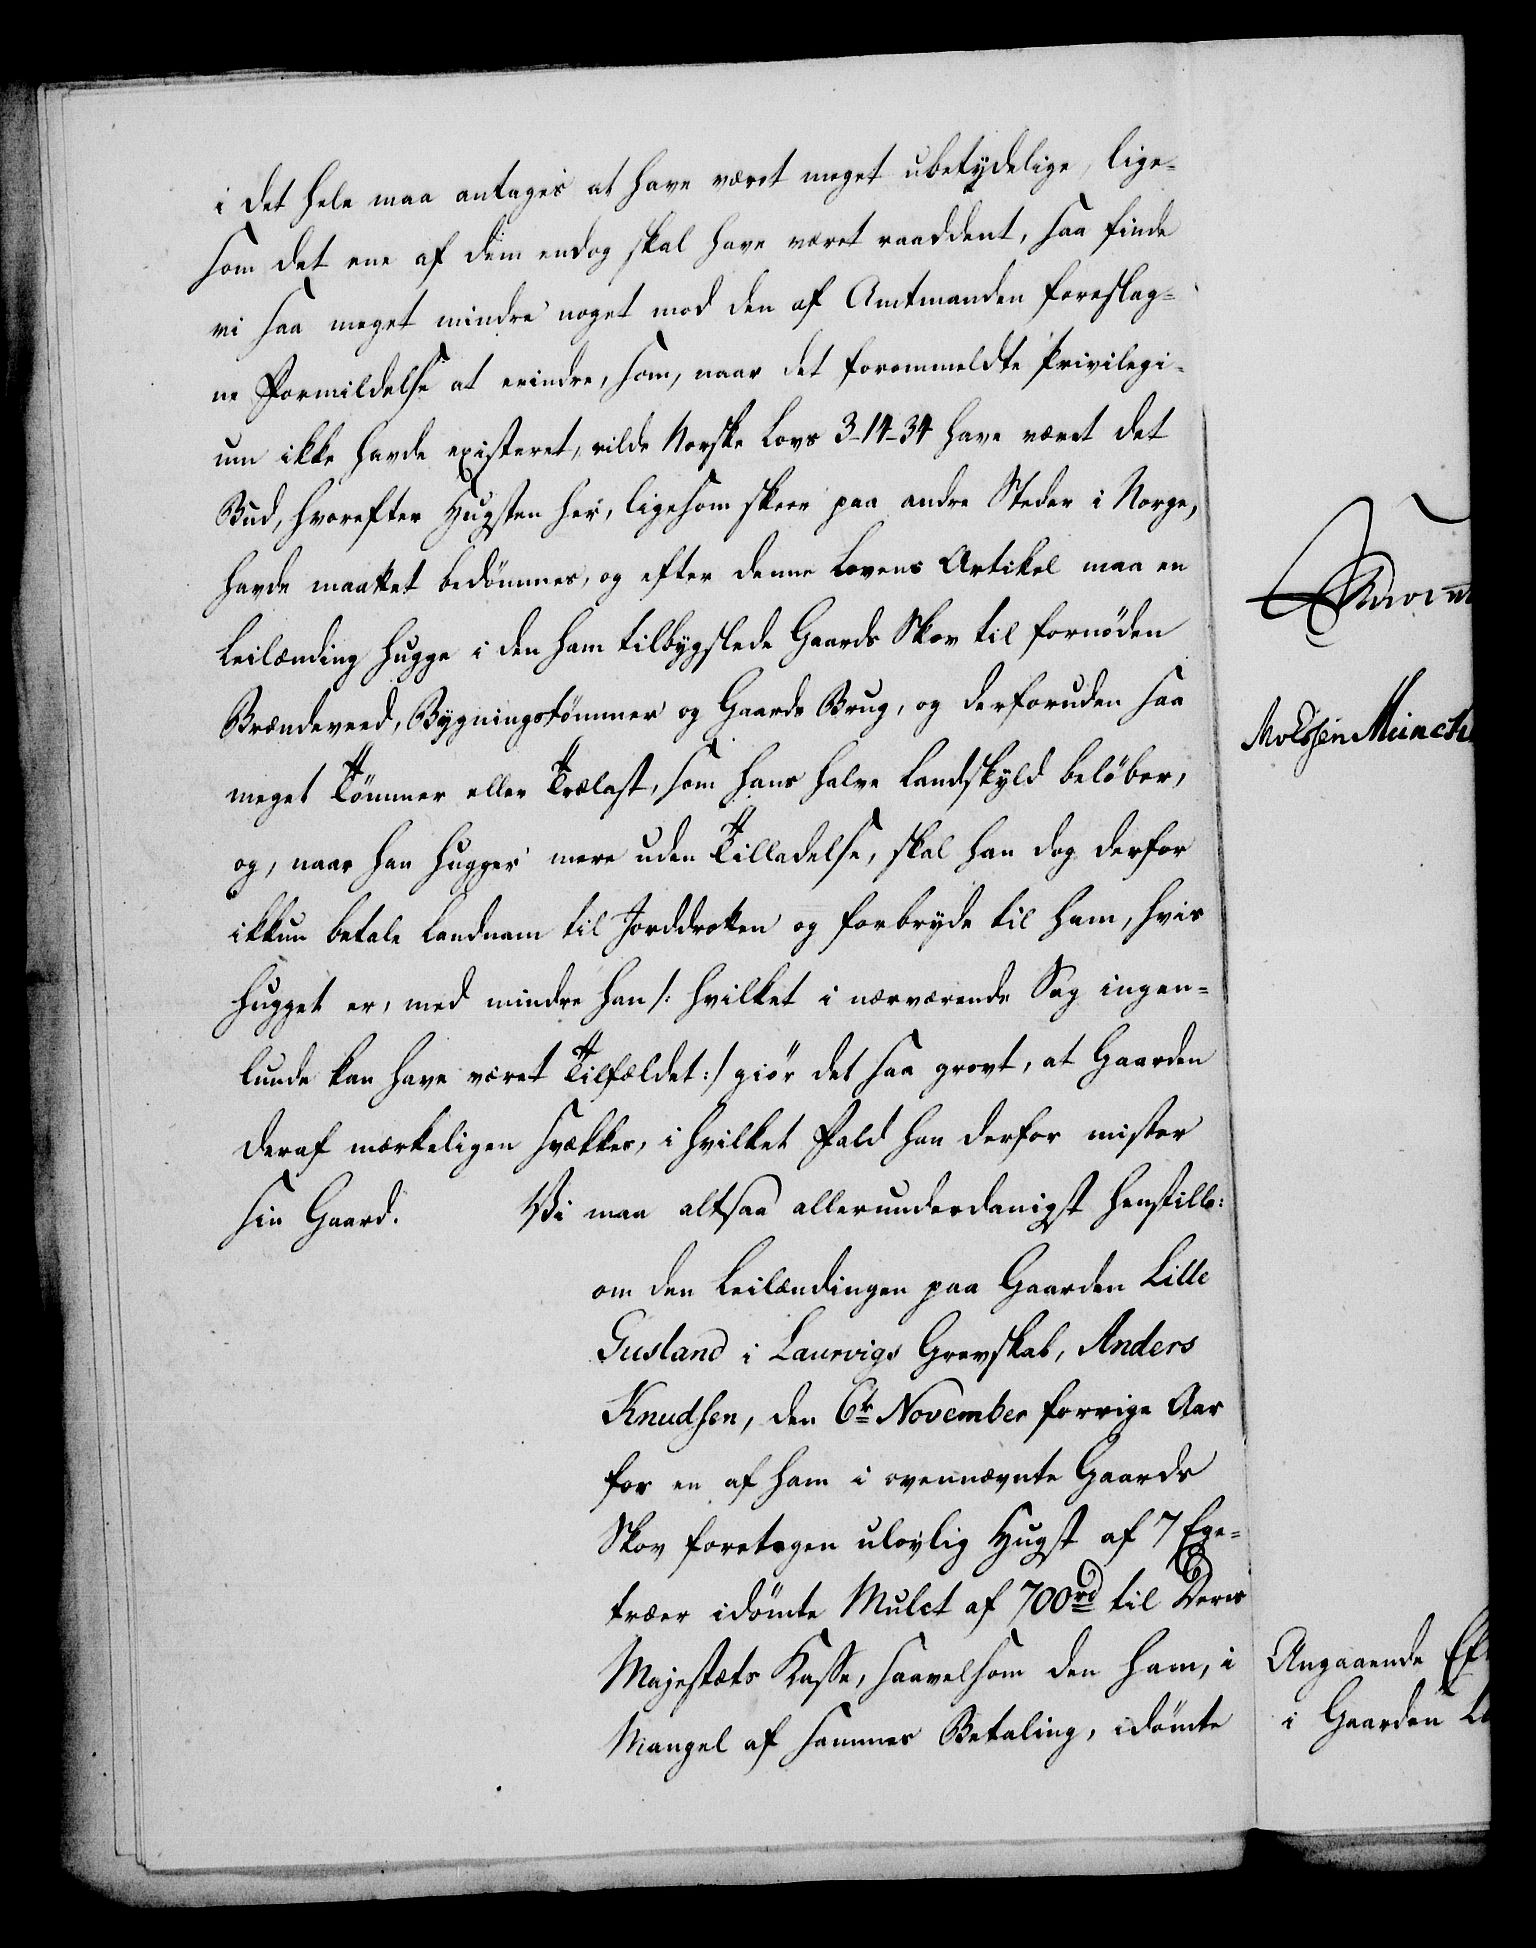 i det hele maa antages at have været meget ubetydelige, lige-
som det ene af dem endog skal have været raaddent, saa finde
vi saa meget mindre noget mod den af Amtmanden foreslag-
ne Formildelse at erindre, som, naar det forommeldte Privilegi-
um ikke havde existeret, vilde Norske Lovs 3-14-34 have været det
Bud, hvorefter Hugsten her, ligesom skeer paa andre Steder i Norge,
havde maattet bedömmes, og efter denne Lovens Artikel maa en
Leilænding hugge i den ham tilbygslede Gaards Skov til fornöden
Brændeveed, Bygningstömmer og Gaards Brug, og derforuden saa
meget Tömmer eller Trælast, som hans halve Landskyld belöber,
og, naar han hugger mere uden Tilladelse, skal han dog derfor
ikkun betale Landnam til Jorddrotten og forbryde til ham, hvis
hugget er, med mindre han /: hvilket i nærværende Sag ingen-
lunde kan have været Tilfældet :/ giör det saa grovt, at Gaarden
deraf mærkeligen svækkes, i hvilket Fald han derfor mister
sin Gaard. Vi maa altsaa allerunderdanigst henstille:
om den Leilændingen paa Gaarden Lille
Gusland i Laurvigs Grevskab, Anders
Knudsen, den 6te November forrige Aar
for en af ham i ovennævnte Gaards
Skov foretagen ulovlig Hugst af 7 Ege-
træer idömte Mulct af 700 rd til Deres
Majestæts Kasse, saavelsom den ham, i
Mangel af sammes Betaling, idömte
Angaaende
i Gaarden